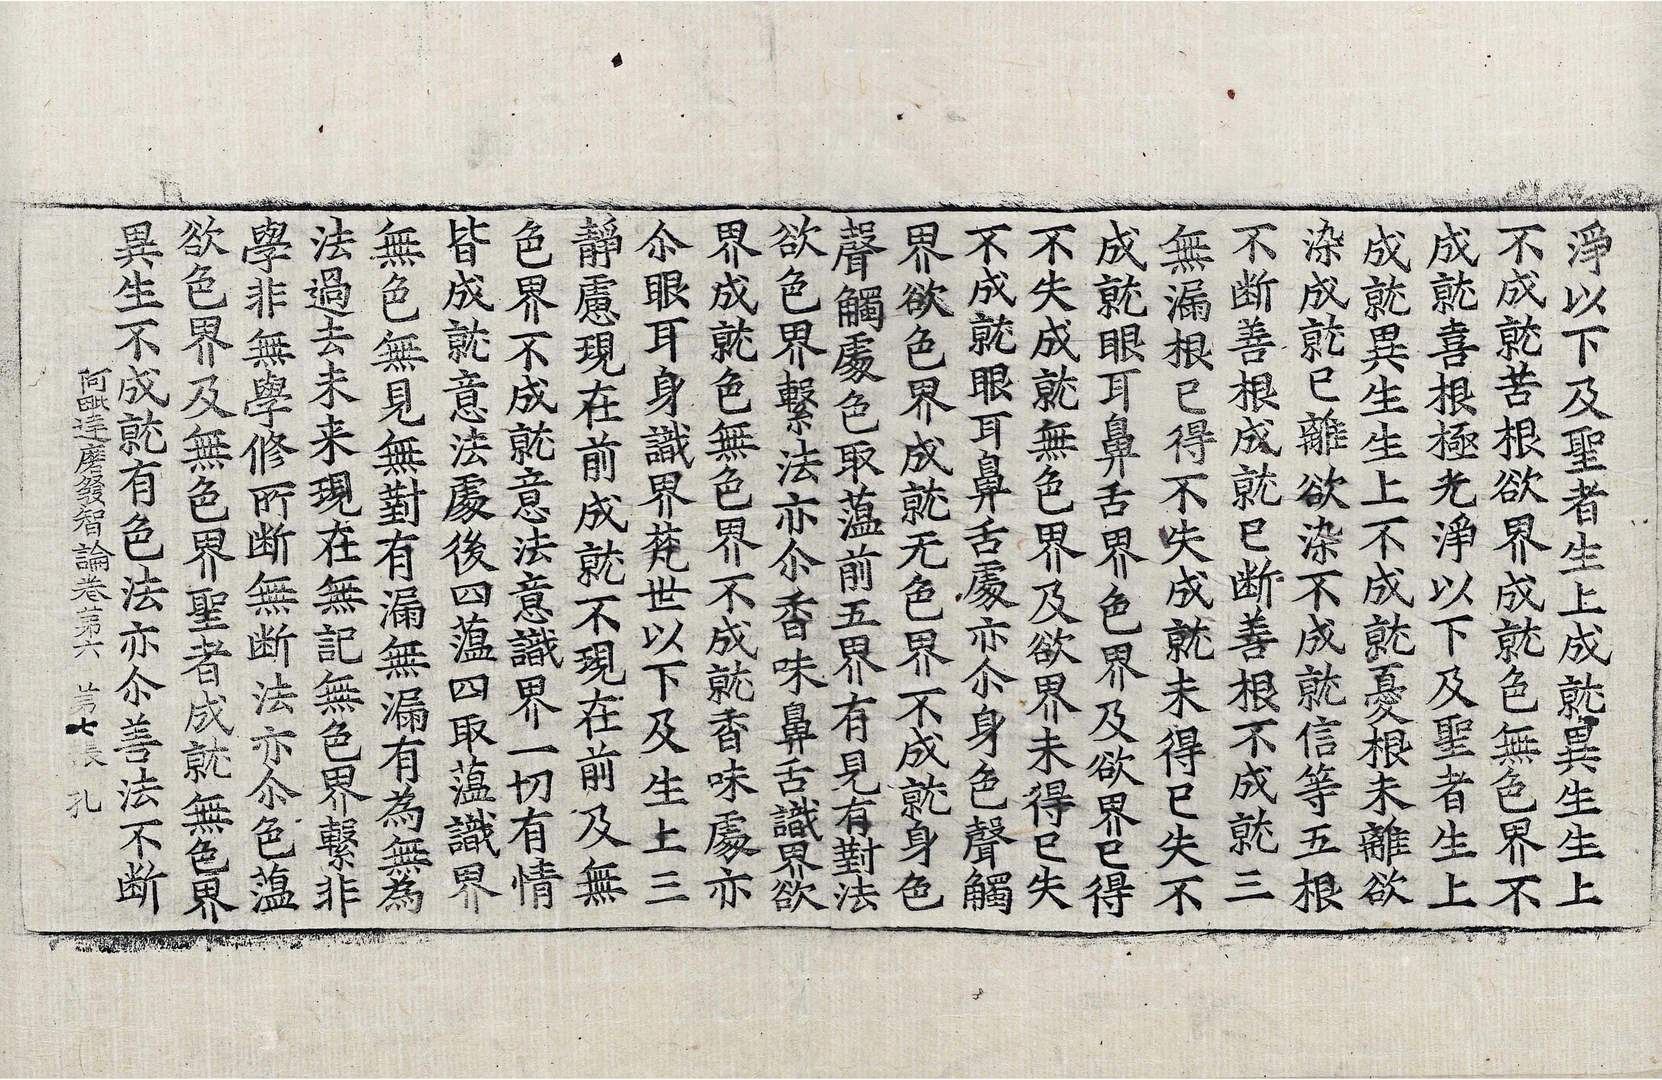 淨以下及聖者生上成就異生生上
不成就苦根欲界成就色無色界不
成就喜根極光淨以下及聖者生上
成就異生生上不成就憂根未離欲
染成就已離欲染不成就信等五根
不斷善根成就已斷善根不成就三
無漏根已得不失成就未得已失不
成就眼耳鼻舌界色界及欲界已得
不失成就無色界及欲界未得已失
不成就眼耳鼻舌處亦尒身色聲觸
界欲色界成就无色界不成就身色
聲觸處色取蕰前五界有見有對法
欲色界繫法亦尒香味鼻舌識界欲
界成就色無色界不成就香味處亦
尒眼耳身識界梵世以下及生上三
靜慮現在前成就不現在前及無
色界不成就意法意識界一切有情
皆成就意法處後四蕰四取蕰識界
無色無見無對有漏無漏有為無為
法過去未来現在無記無色界繫非
學非無學修所断無断法亦尒色蕰
欲色界及無色界聖者成就無色界
異生不成就有色法亦尒善法不断
阿毗達磨發智論卷第六　第七張　孔